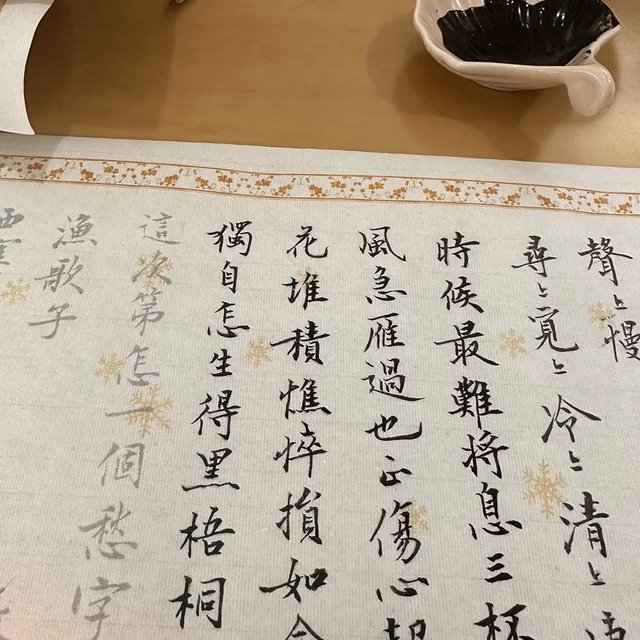 聲〻慢
尋〻覓〻冷〻清〻
時候最難將息三杯
風急雁過也正傷心却
花堆積憔悴損如今
獨自怎生得黑梧桐
這次第怎一個愁字
漁歌子
西